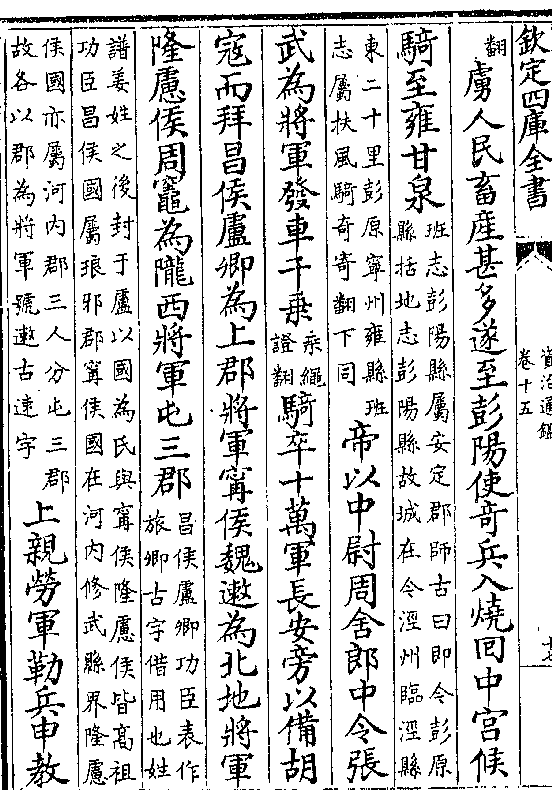 欽定四庫全書
資治通鑑
卷十五
翻
虜人民畜産甚多遂至彭陽使竒兵入燒回中宮候
騎至雍甘泉
班志彭陽縣屬安定郡師古曰即今彭原
縣括地志彭陽縣故城在今涇州臨涇縣
東二十里彭原寧州雍縣班
志屬扶風騎奇寄翻下同
帝以中尉周舍郎中令張
武為將軍發車千乗
乘繩
證翻
騎卒十萬軍長安旁以備胡
寇而拜昌侯盧卿為上郡將軍甯侯魏遬為北地將軍
隆慮侯周竈為隴西將軍屯三郡
昌侯盧卿功臣表作
旅卿古字借用也姓
譜姜姓之後封于盧以國為氏與甯侯隆慮侯皆髙祖
功臣昌侯國屬琅邪郡甯侯國在河内修武縣界隆慮
侯國亦屬河内郡三人分屯三郡
故各以郡為將軍號遬古速字
上親勞軍勒兵申教